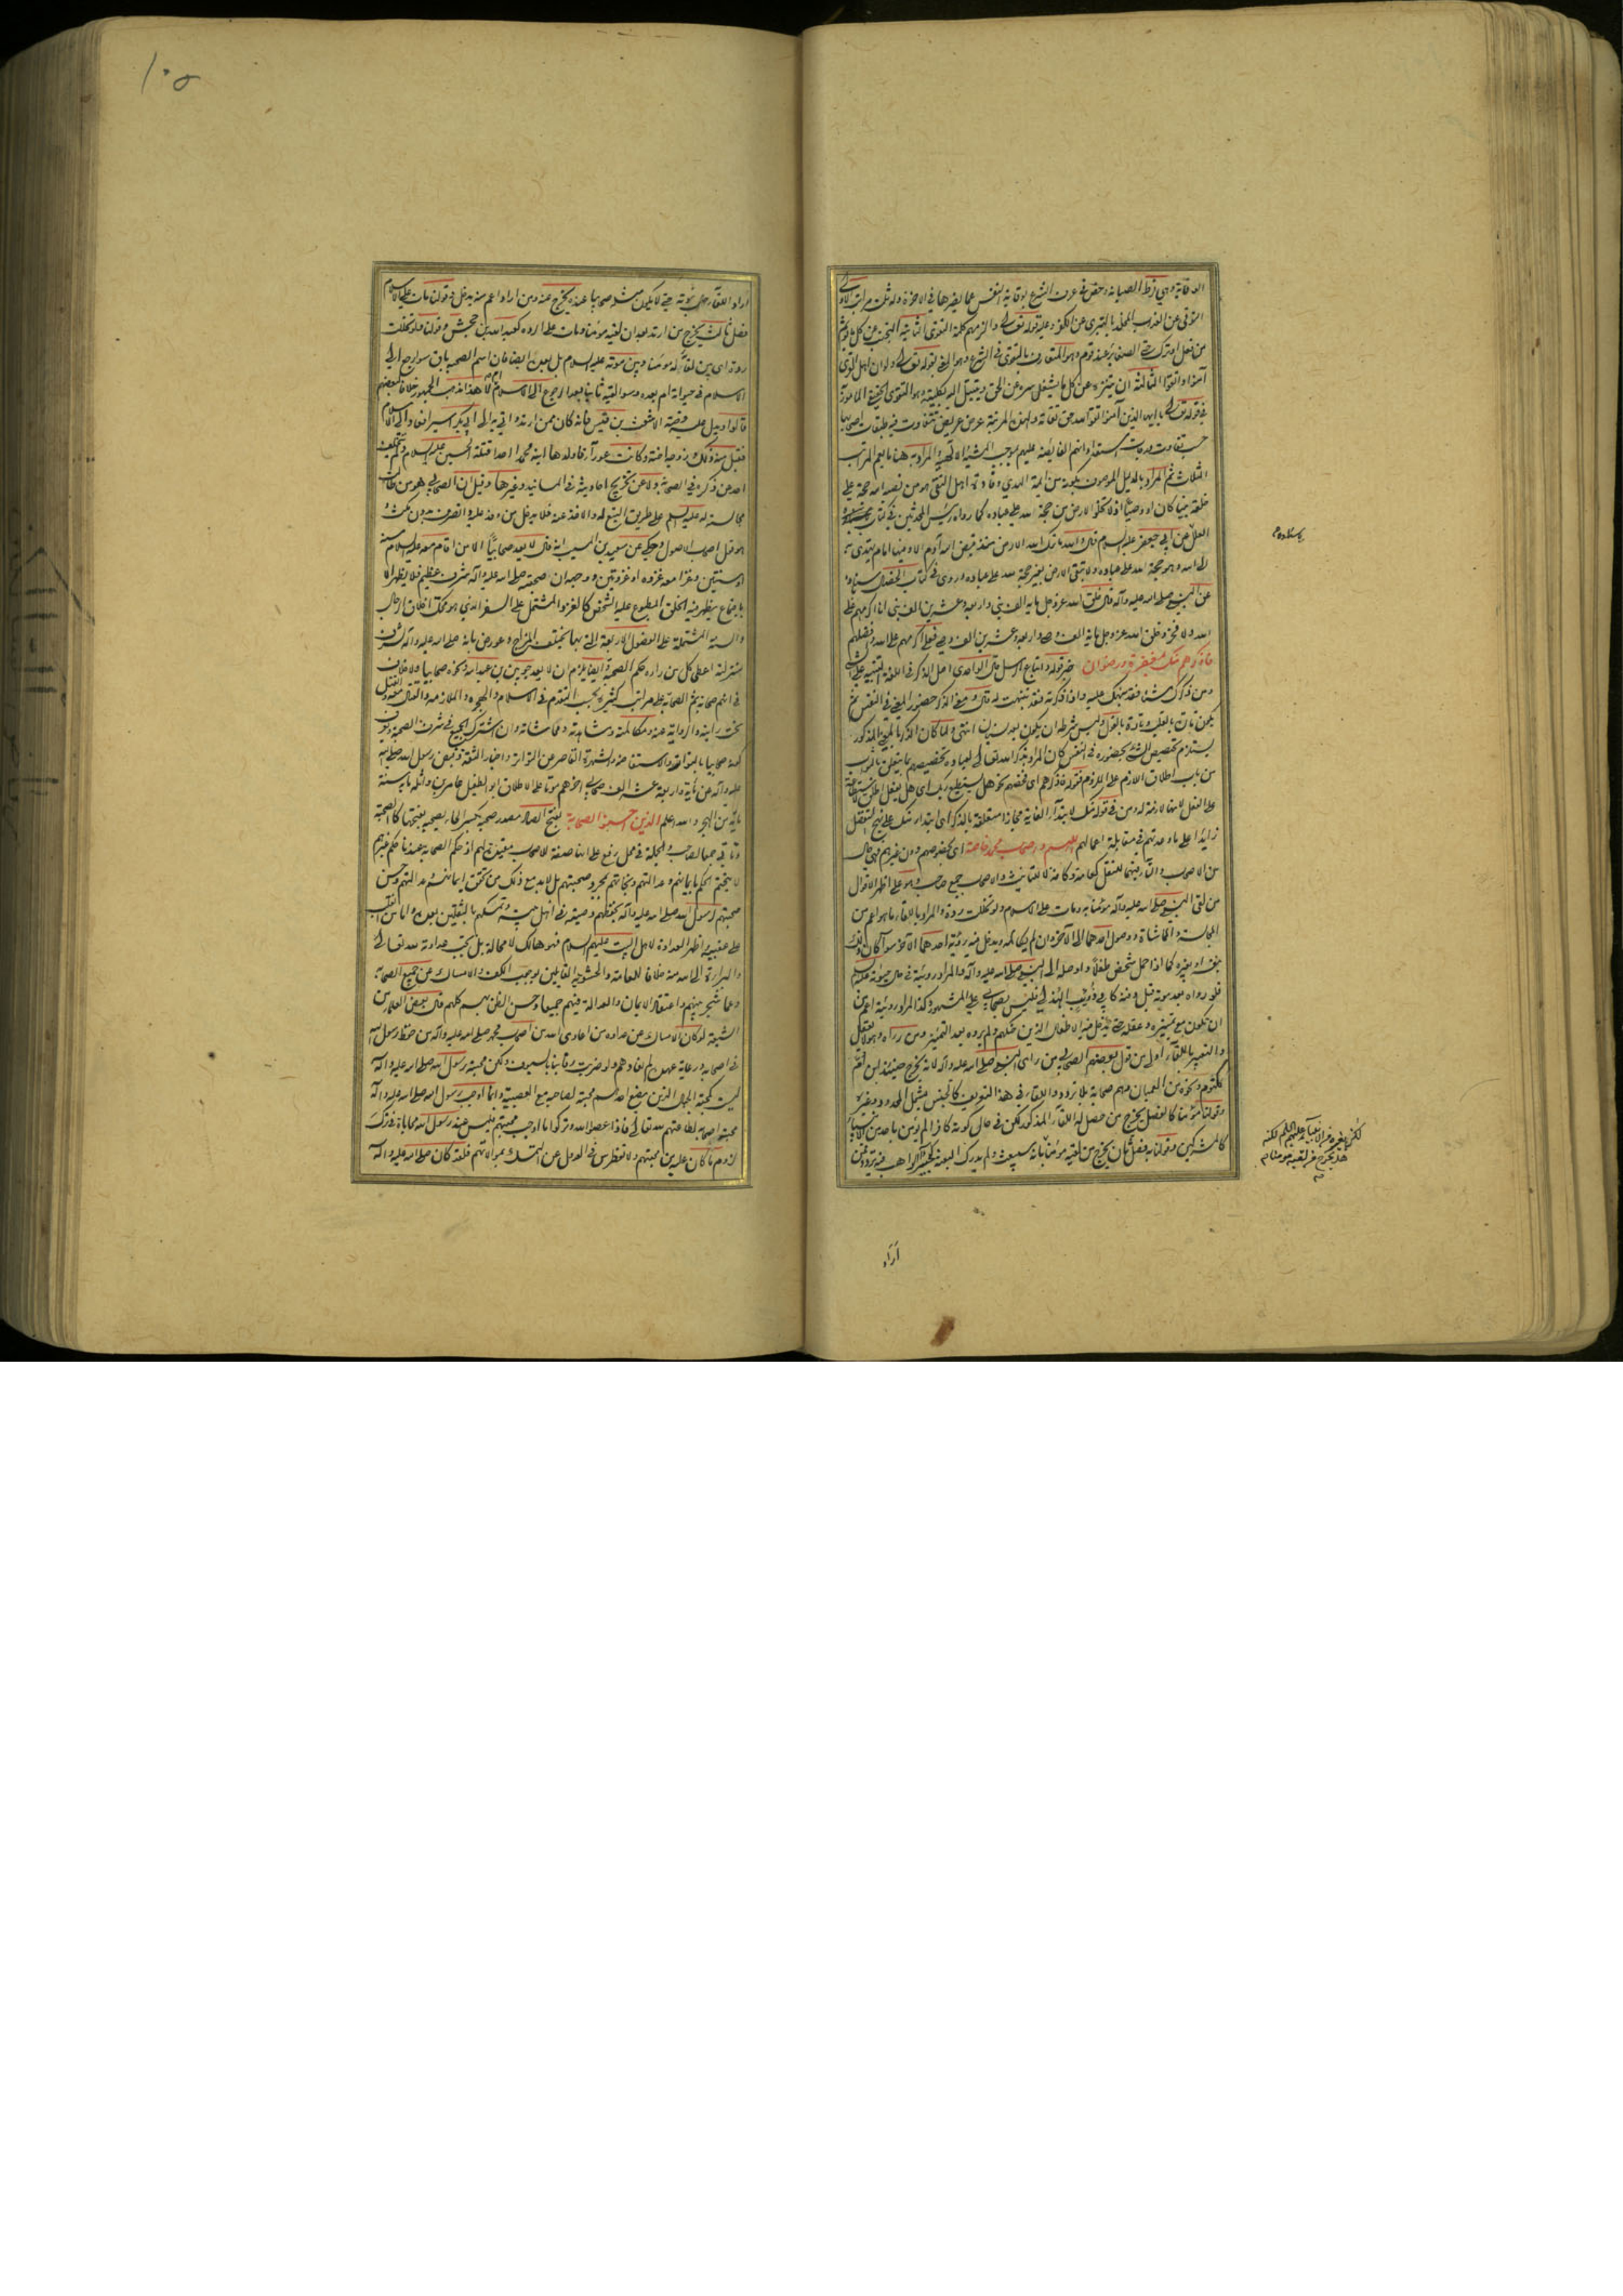 الوقاية وهي فرط الصيانة وخص في عرف الشرع بوقاية النفس عما يضرها في الآخرة وله ثلث مراتب الاولى
التوقي عن العذاب المخلد بالتبري عن الكفر وعليه قوله تعالى والزمهم كلمة التقوى الثانية التجنب عن كل ما يؤثم
من فعل او ترك حتى الصغائر عند قوم وهو المتعارف بالتقوى في الشرع وهو المعنى بقوله تعالى ولو ان اهل القرى
آمنوا واتقوا الثالثة ان يتنزه عن كل ما يشغل سره عن الحق ويتبتل اليه بكليته وهو التقوى الحقيقي المامور به
في قوله تعالى يا ايها الذين آمنوا اتقوا الله حق تقاته ولهذه المرتبة عرض عريض يتفاوت فيه طبقات اصحابها
حسب تفاوت درجات استعداداتهم الفايضة عليهم بموجب المشية الالهية والمراد به هنا ما يعم المراتب
الثلاث ثم المراد بالدليل الموصوف بكونه من ائمة الهدى وقادة اهل التقى هو من نصبه الله حجة على
خلقه نبيا كان او وصيا اذ لا تخلو الارض من حجة الله على عباده كما رواه رئيس المحدثين في كتاب
العلل عن ابي جعفر عليه السلام قال والله ما ترك الله الارض منذ قبض الله آدم الا وفيها امام يهتدى به
الى الله وهو حجة الله على عباده ولا تبقى الارض بغير حجة لله على عباده وروى في كتاب الخصال باسناده
عن النبي صلى الله عليه وآله قال خلق الله عز وجل ماية الف نبي واربعة وعشرين الف نبي انا اكرمهم على
الله ولا فخر وخلق الله عز وجل ماية الف وصي واربعة وعشرين الف وصي فعلي اكرمهم على الله وافضلهم
فاذكرهم منك بمغفرة ورضوان خبر قوله واتباع الرسل قال الواحدي اصل الذكر في اللغة التنبيه على الشئ
ومن ذكرك شيئا فقد نبهك عليه واذا ذكرته فقد تنبهت له قال ومعنى الذكر حضور المعنى في النفس ثم
يكون تارة بالقلب وتارة بالقول وليس شرطه ان يكون بعد نسيان انتهى ولما كان الذكر بالمعنى المذكور
يستلزم تخصيص الشئ بحضوره في النفس كان المراد بذكر الله تعالى لعباده تخصيصهم بما يتعلق بالثواب
من باب اطلاق اللازم على الملزوم فقوله فاذكرهم اي فخصهم نحو هل يستطيع ربك اي هل يفعل اطلق الاستطاعة
على الفعل لانها لازمة له ومن في قوله منك لابتداء الغاية مجازا متعلقة بالذكر اي ابتداء منك على نهج التفضل
زايدا على ما وعدتهم في مقابلة اعمالهم اللهم واصحاب محمد خاصة اي بخصوصهم دون غيرهم فهي حال
من الاصحاب والتاء فيها للنقل كعامة وكافة لا للتانيث والاصحاب جمع صاحب وهو على اظهر الاقوال
من لقي النبي صلى الله عليه وآله مؤمنا به ومات على الاسلام ولو تخللت ردة والمراد باللقاء ما هو اعم من
المجالسة والمماشاة ووصول احدهما الى الآخر وان لم يكالمه ويدخل فيه رؤية احدهما الآخر سواء كان ذلك
بنفسه او بغيره كما اذا حمل شخص طفلا واوصله الى النبي صلى الله عليه وآله والمراد رؤيته في حال حيوته عليه السلام
فلو رواه بعد موته قبل دفنه كابي ذؤيب الهذلي فليس بصحابي على المشهور وكذا المراد رؤيته اعم من
ان تكون مع تمييزه وعقله حتى يدخل فيه الاطفال الذين حنكهم ولم يروه بعد التمييز ومن رآه وهو لا يعقل
والتعبير باللقاء اولى من قول بعضهم الصحابي من راى النبي صلى الله عليه وآله لانه يخرج حينئذ ابن ام
مكتوم ونحوه من العميان وهم صحابة بلا تردد واللقاء في هذا التعريف كالجنس يشمل المحدود وغيره
وقولنا مؤمنا كالفصل يخرج من حصل له اللقاء المذكور لكن في حال كونه كافرا لم يؤمن باحد من الانبياء
كالمشركين وقولنا به فصل ثان يخرج من لقيه مؤمنا بانه سيبعث ولم يدرك البعثة كبحيرا الراهب فيه تردد فمن
اراد
١٠٥
اراد اللقاء حال نبوته حتى لا يكون مثله صحابيا عنده يخرج عنه ومن اراد اعم منه يدخل وقولنا مات على الاسلام
فصل ثالث يخرج من ارتد بعد ان لقيه مؤمنا ومات على الردة كعبيد الله بن جحش وقولنا ولو تخللت
ردة اي بين لقائه له مؤمنا وبين موته عليه السلام بل بعده ايضا فان اسم الصحبة باق سواء رجع الى
الاسلام في حيوته ام بعده وسواء لقيه ثانيا بعد الرجوع الى الاسلام ام لا هذا مذهب الجمهور خلافا لبعضهم
قالوا ويدل عليه قصة الاشعث بن قيس فانه كان ممن ارتد واتي به الى ابي بكر اسيرا فعاد الى الاسلام
فقبل منه ذلك وزوجه اخته وكانت عوراء فاولدها ابنه محمدا احد قتلة الحسين عليه السلام ولم يتخلف
احد عن ذكره في الصحابة ولا عن تخريج احاديثه في المسانيد وغيرها وقيل ان الصحابي هو من طالت
مجالسته له عليه السلام على طريق التتبع له والاخذ عنه فلا يدخل من وفد عليه وانصرف بدون مكث و
هو قول اصحاب الاصول وحكي عن سعيد بن المسيب انه قال لا يعد صحابيا الا من اقام معه عليه السلام سنة
او سنتين وغزا معه غزوة او غزوتين ووجه ان صحبته صلى الله عليه وآله شرف عظيم فلا يظهر الا
باجتماع يظهر فيه الخلق المطبوع عليه الشخص كالغزو المشتمل على السفر الذي هو محك اخلاق الرجال
والسنة المشتملة على الفصول الاربعة التي بها يختلف المزاج وعورض بانه صلى الله عليه وآله لشرف
منزلته اعطى كل من رآه حكم الصحبة وايضا يلزم ان لا يعد جرير بن عبد الله ونحوه صحابيا ولا خلاف
في انهم صحابة ثم الصحابة على مراتب كثيرة بحسب التقدم في الاسلام والهجرة والملازمة والقتال معه والقتل
تحت رايته والرواية عنه ومكالمته ومشاهدته ومماشاته وان اشترك الجميع في شرف الصحبة ويعرف
كونه صحابيا بالتواتر والاستفاضة والشهرة القاصر عن التواتر واخبار الثقة وقبض رسول الله صلى الله
عليه وآله عن مائة واربعة عشر الف صحابي آخرهم موتا على الاطلاق ابو الطفيل عامر بن واثلة مات سنة
ماية من الهجرة والله اعلم الذين احسنوا الصحابة بفتح الصاد مصدر صحبه بكسر الحاء يصحبه بفتحها كالصحبة
وتاتي جمعا لصاحب والجملة في محل رفع على انها صفة لاصحاب مقيدة لهم اذ حكم الصحابة عندنا حكم غيرهم
لا يتحتم الحكم بايمانهم وعدالتهم ونجاتهم بمجرد صحبتهم بل لا بد مع ذلك من تحقق ايمانهم وعدالتهم وحسن
صحبتهم لرسول الله صلى الله عليه وآله بحفظهم وصيته في اهل بيته وتمسكهم بالثقلين بعده واما من انقلب
على عقبيه واظهر العداوة لاهل البيت عليهم السلام فهو هالك لا محالة بل تجب عداوته لله تعالى
والبراءة الى الله منه خلافا للعامة والحشوية القائلين بوجوب الكف والامساك عن جميع الصحابة
وعما شجر بينهم واعتقاد الايمان والعدالة فيهم جميعا وحسن الظن بهم كلهم قال بعض العلماء من
الشيعة لو كان الامساك عن عداوة من عادى الله من اصحاب محمد صلى الله عليه وآله من حفظ رسول الله
في اصحابه ورعاية عهده لم نعادهم ولو ضربت رقابنا بالسيوف ولكن محبة رسول الله صلى الله عليه وآله
ليست كمحبة الجهال الذين يضع احدهم محبته لصاحبه مع العصبية وانما اوجب رسول الله صلى الله عليه وآله
محبة اصحابه لطاعتهم لله تعالى فاذا عصوا الله وتركوا ما اوجب محبتهم فليس عند رسول الله محاباة في ترك
لزوم ما كان عليه من محبتهم ولا تغطرس في العدول عن التمسك بموالاتهم فلقد كان صلى الله عليه وآله